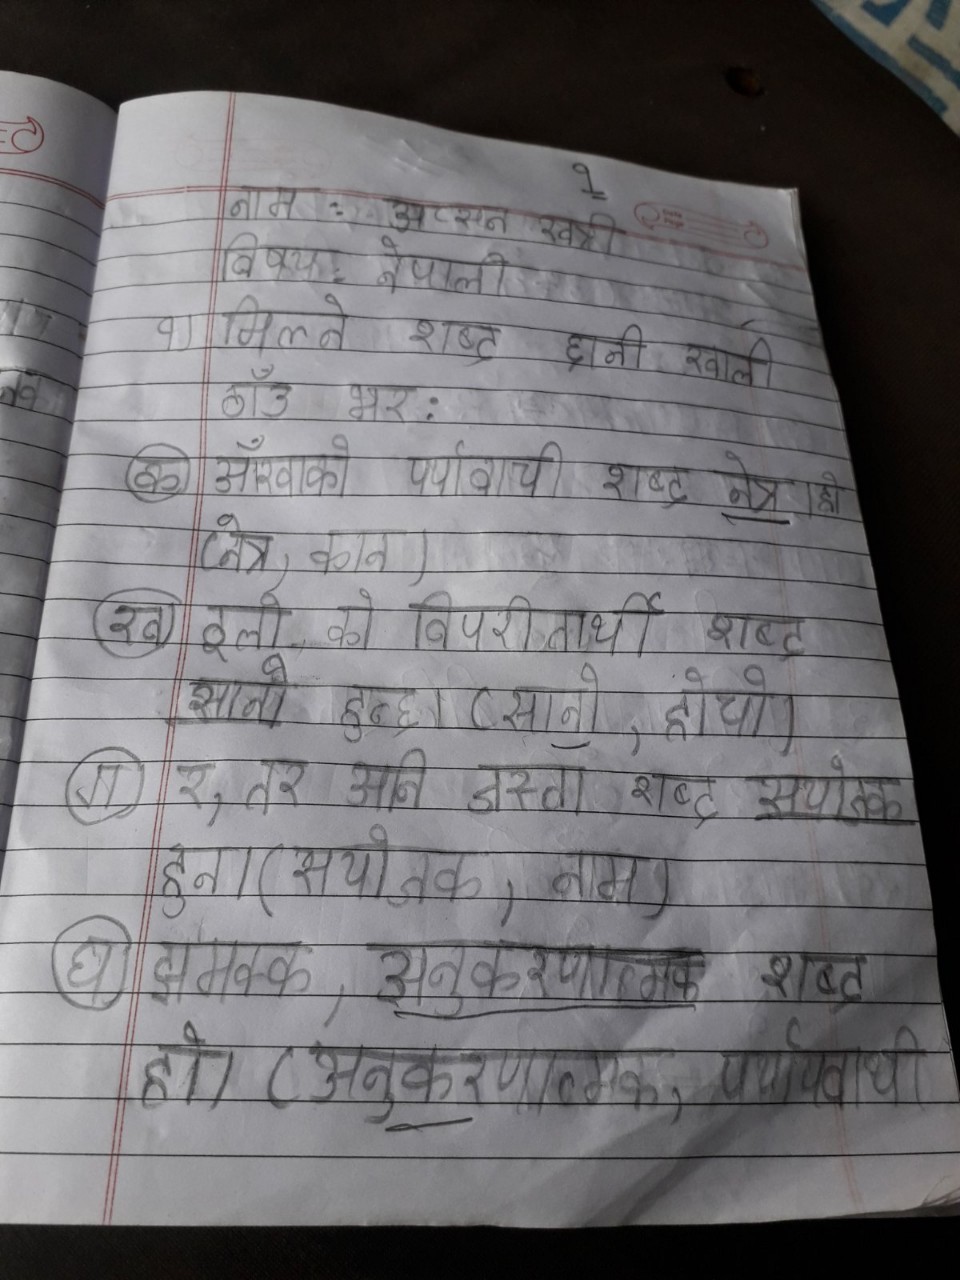 १
नाम : अस्सन खत्री
विषय : नेपाली
१) मिल्ने शब्द छानी खाली
ठाँउ भर :
क आँखाको पर्यावाची शब्द नेत्र हो
(नेत्र, कान)
ख ठूलो को विपरीतार्थी शब्द
सानो हुन्छ। (सानो, होचो)
ग र, तर अनि जस्ता शब्द सयोजक
हुन। (सयोजक, नाम)
घ झमक्क, अनुकरणात्मक शब्द
हो। (अनुकरणात्मक, पर्यायवाची